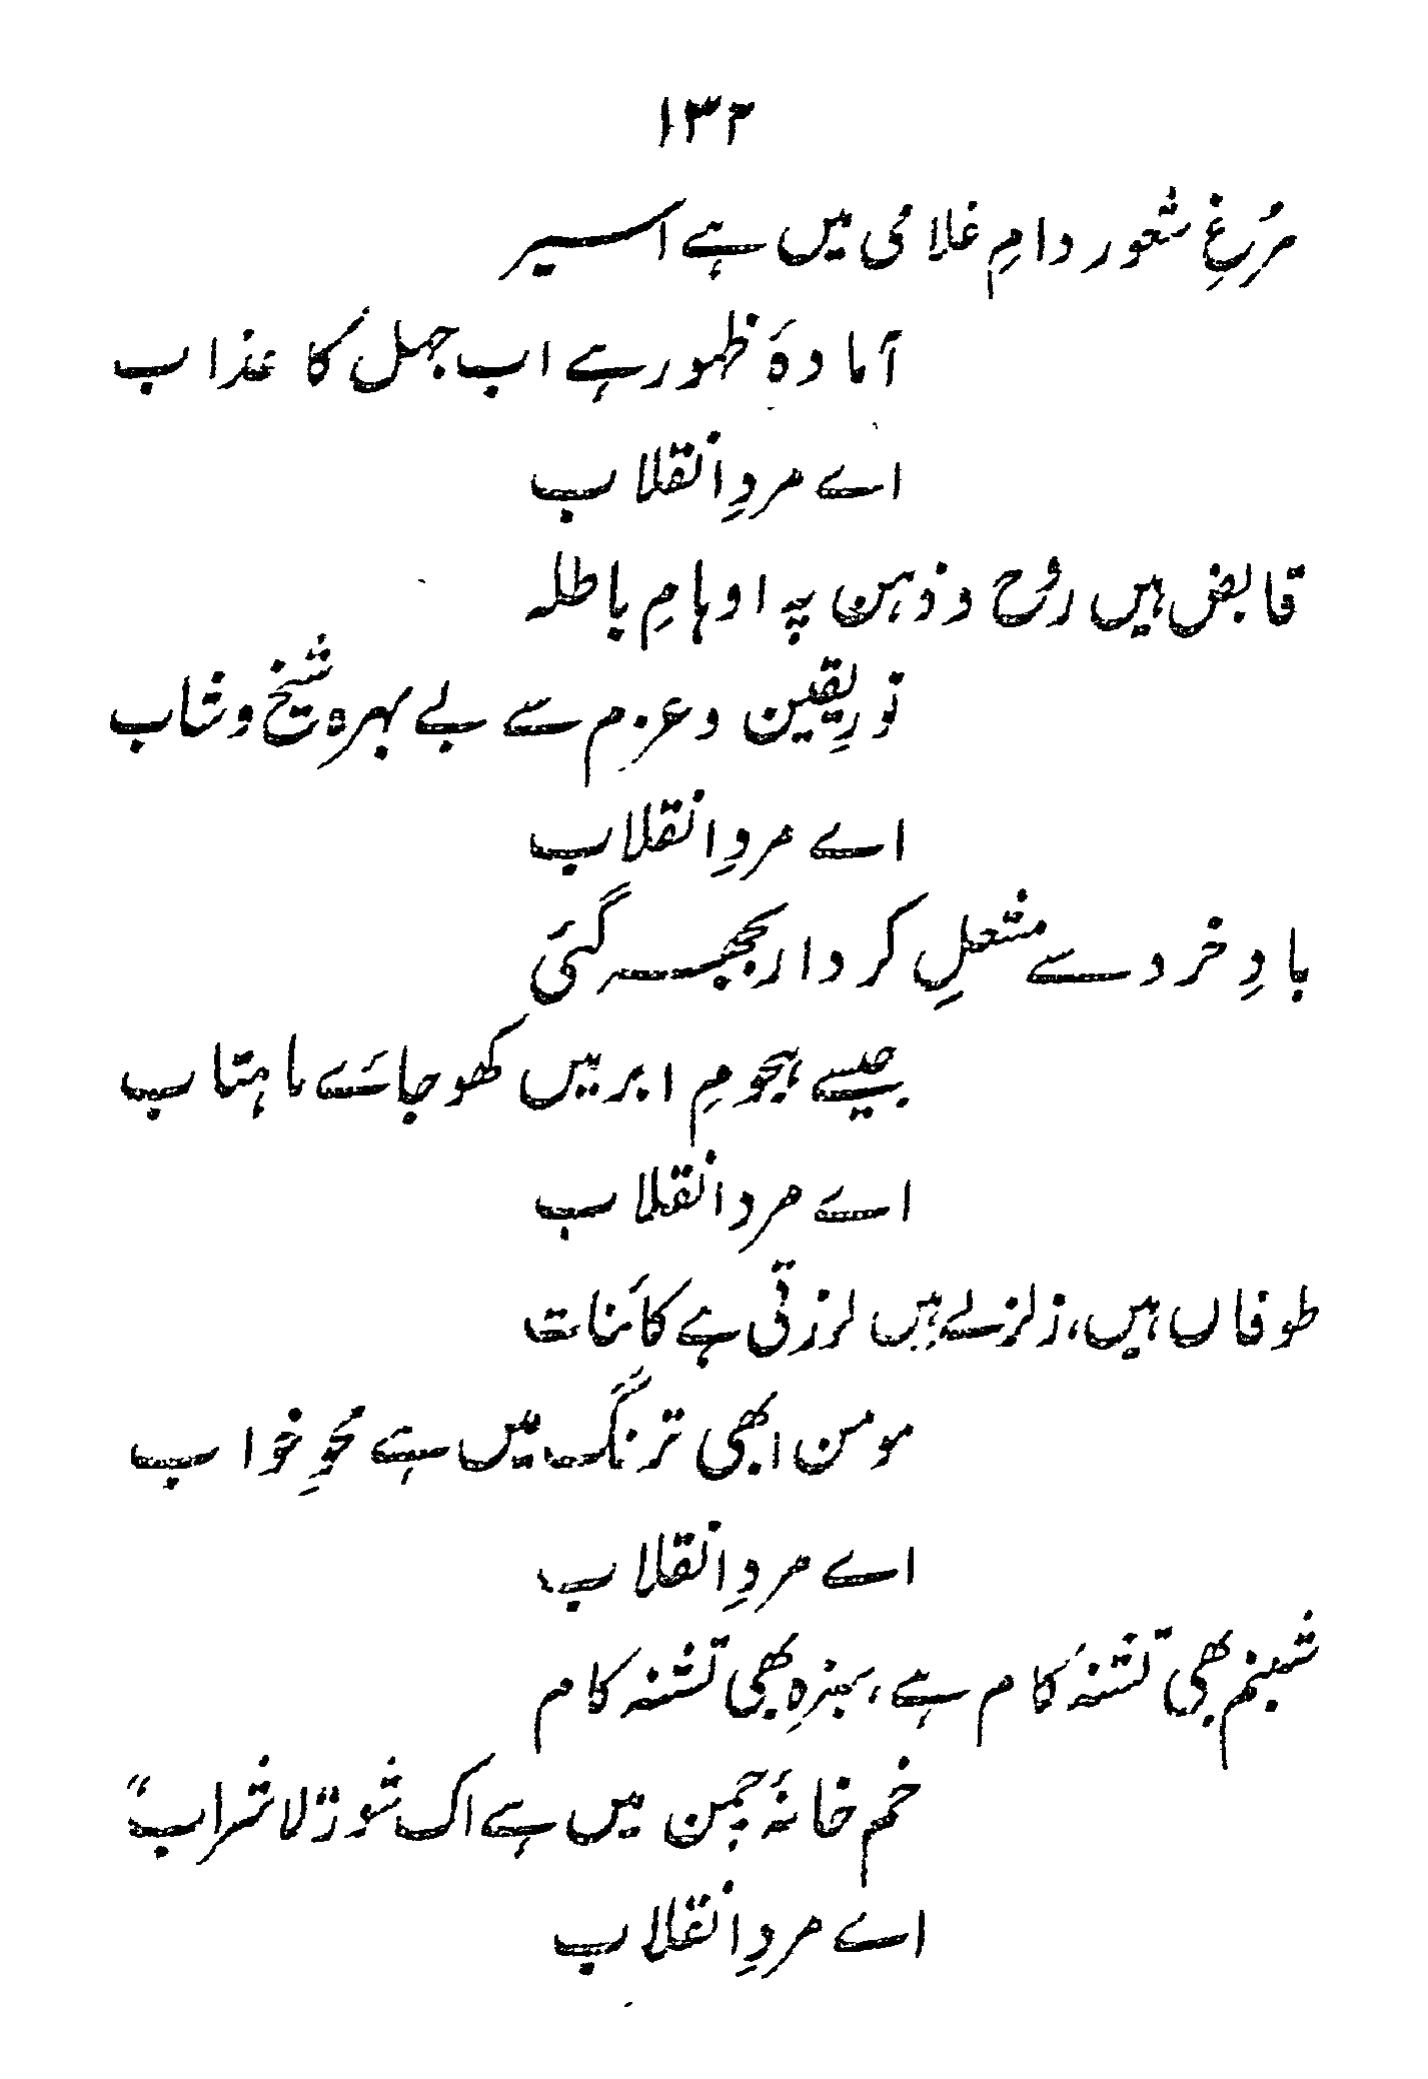 ۱۳۲
مُرغِ شعور دامِ غلامی میں ہے اسیر
آمادۂ ظہور ہے اب جہل کا عذاب
اے مردِ انقلاب
قابض ہیں روُح و ذہن پہ اوہامِ باطلہ
نورِ یقین و عزم سے بے بہرہ شیخ و شاب
اے مردِ انقلاب
بادِ خرد سے مشعلِ کردار بجھ گئی
جیسے ہجومِ ابر میں کھو جائے ماہتاب
اے مرد انقلاب
طوفاں ہیں، زلزلے ہیں لرزتی ہے کائنات
مومن ابھی ترنگ میں ہے محوِ خواب
اے مردِ انقلاب
شبنم بھی تشنہ کام ہے، سبزہ بھی تشنہ کام
خم خانۂ چمن میں ہے اک شور "لا شراب"
اے مردِ انقلاب